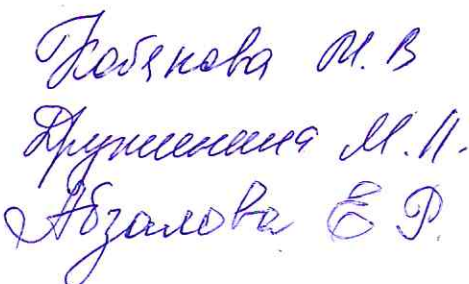 Кобякова М. В
Дружинина М. П.
Абзалова Е Р.